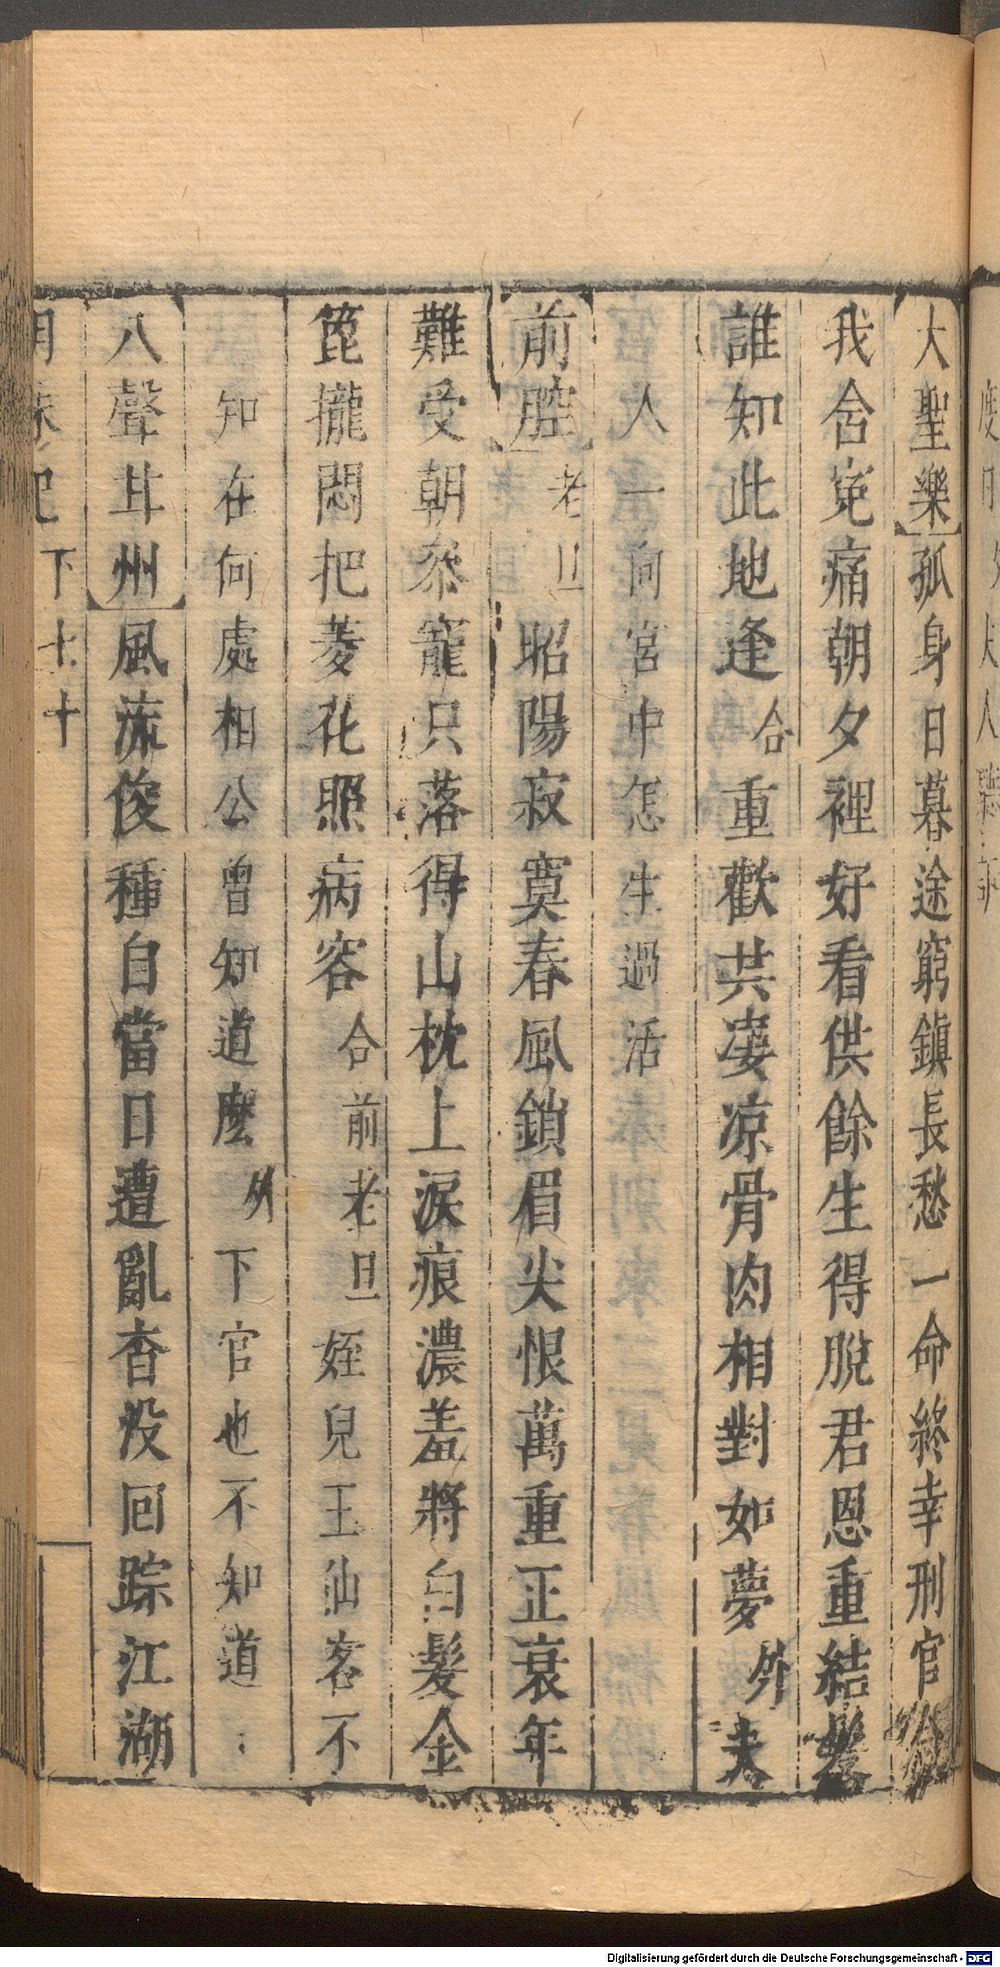 大聖樂孤身日暮途窮鎭長愁一命終幸刑官
我含寃痛朝夕裡好看供餘生得脫君恩重結髮
誰知此地逢合重歡共凄凉骨肉相對如夢外夫
人一向宮中怎生過活
前腔老旦昭陽寂寞春風鎖眉尖恨萬重正衰年
難受朝叅寵只落得山枕上淚痕濃羞將白髮金
篦攏悶把菱花照病容合前老旦姪兒王仙客不
知在何處相公曾知道麽外下官也不知道
八聲甘州風流俊種自當日遭亂杳没回踪江湖
明珠記 下 七十
Digitalisierung gefördert durch die Deutsche Forschungsgemeinschaft - DFG